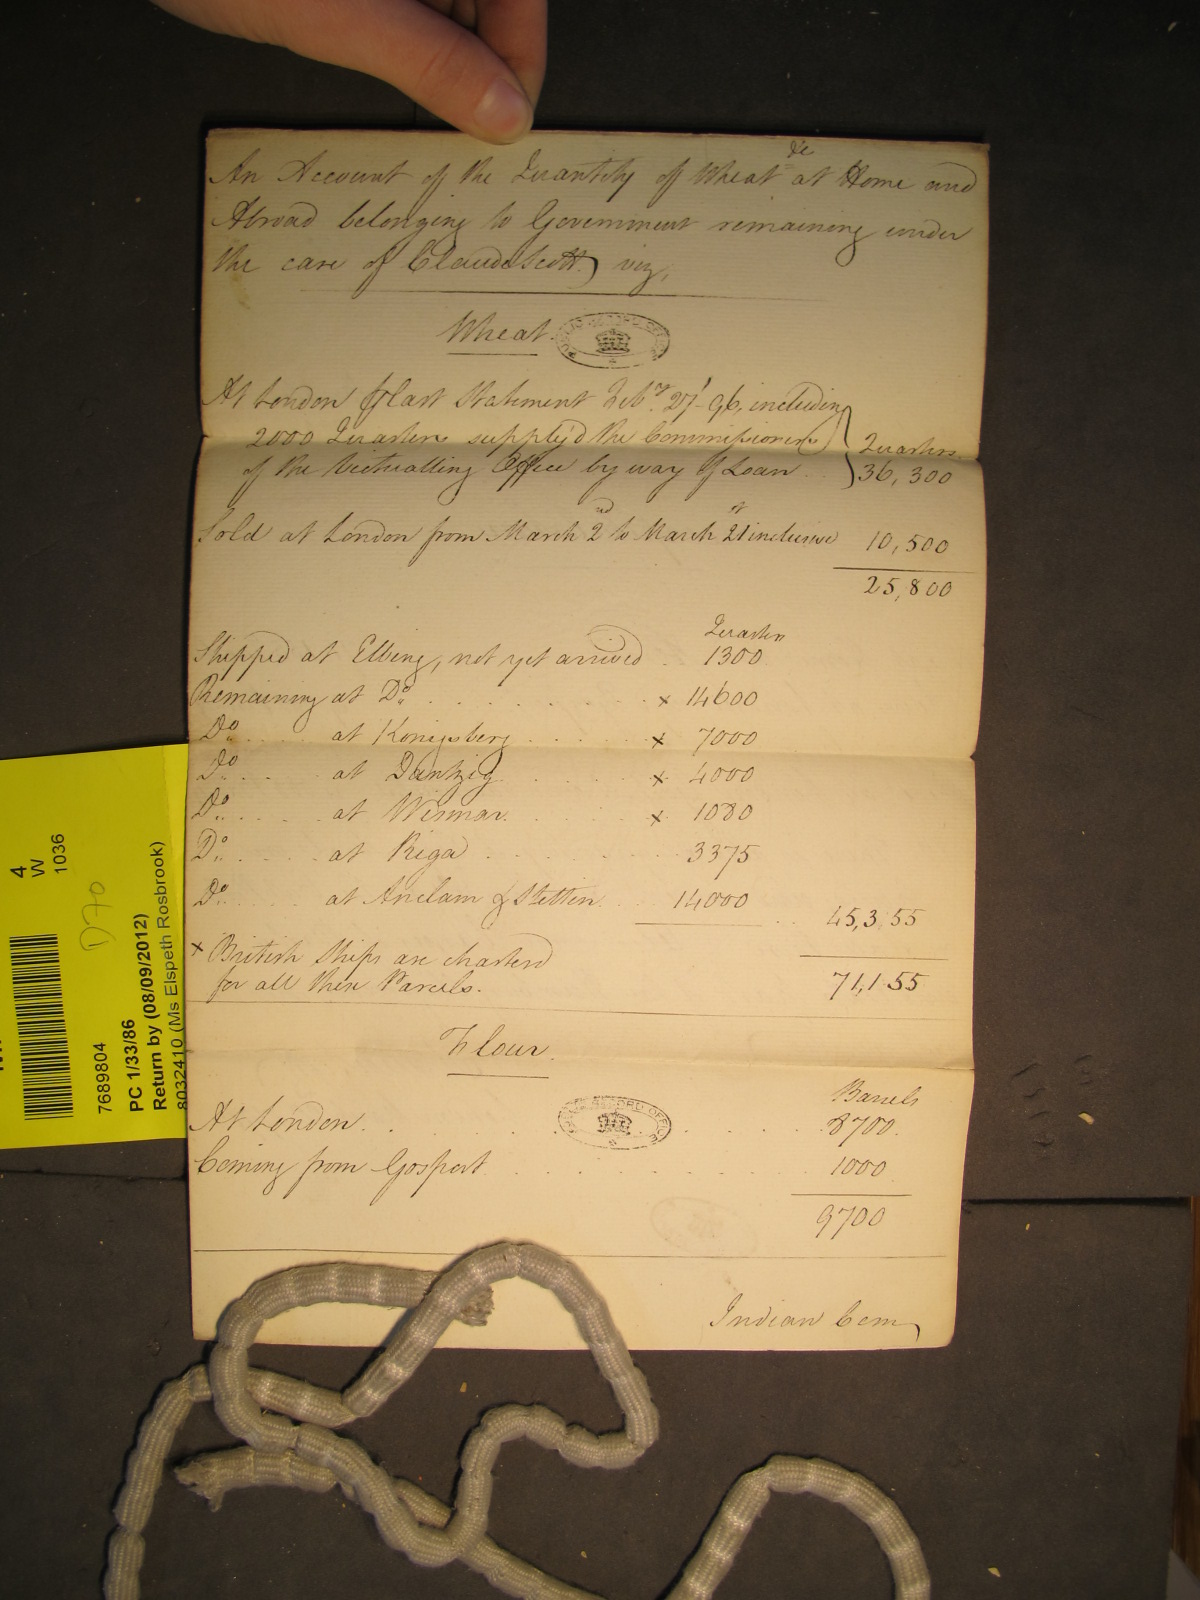 An Account of the Quantity of Wheat &c at Home and
Abroad belonging to Government remaining under
the care of Claude Scott viz,
Wheat.
PUBLIC RECORD OFFICE
At London last Statement Feby. 27-96, including
2000 Quarters supply'd the Commissioners
of the Victualling Office by way of Loan
Quarters
36,300
Sold at London from March 2nd to March 21st inclusive 10,500
25,800
Quarters
Shipped at Elbing, not yet arrived .. 1300
Remaining at Do. . . . . . . x 14600
Do. .... at Konigsberg .... x 7000
Do. .... at Dantzig ..... x 4000
Do. .... at Wismar. .... x 1080
Do. .... at Riga ..... 3375
Do. .... at Anclam & Stettin. 14000
45,355
x British Ships are charterd
for all their Parcels.
71,155
Flour.
Barrels
PUBLIC RECORD OFFICE
At London. . . . . . . 8700.
Coming from Gosport . . . . . 1000
9700
Indian Corn
4
W
1036
D70
7689804
PC 1/33/86
Return by (08/09/2012)
8032410 (Ms Elspeth Rosbrook)